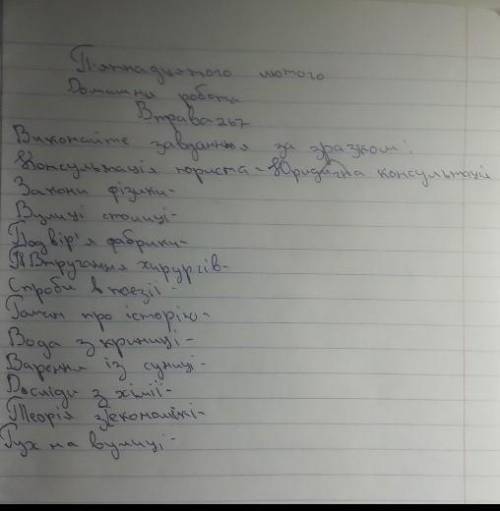 П'ятнадцятого лютого
Домашня робота
Вправа 267
Виконайте завдання за зразком:
Консультація юриста - Юридична консультація
Закони фізики-
Вулиці столиці-
Подвір'я фабрики-
Втручання хирургів-
Спроби в поезії-
про історію-
Вода з криниці-
Варення із суниці-
Досліди з хімії-
Теорія з економікі-
Рух на вулиці-